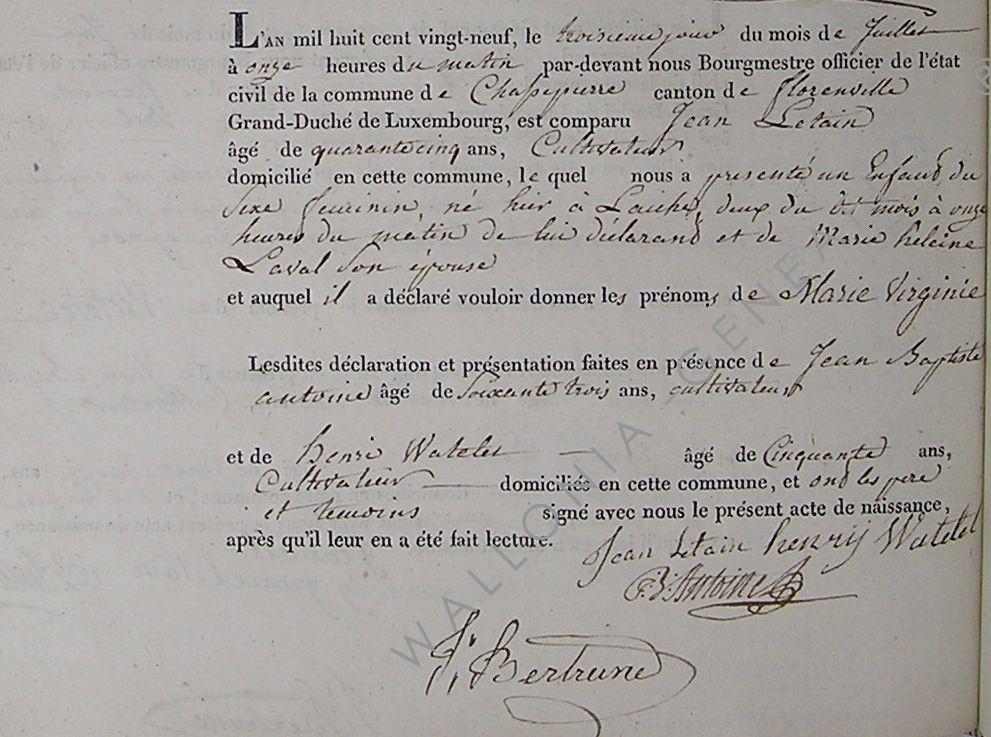 L'AN mil huit cent vingt-neuf, le troisieme jour du mois de Juillet
à onze heures du matin par-devant nous Bourgmestre officier de l'état
civil de la commune de Chassepierre canton de florenville
Grand-Duché de Luxembourg, est comparu Jean Letain
âgé de quarante cinq ans, Cultivateur
domicilié en cette commune, le quel nous a presenté un Enfant du
sexe feminin, né hier à Laiche, deux du dit mois à onze
heures du matin de lui déclarand et de Marie heleine
Laval son épouse
et auquel il a déclaré vouloir donner les prénoms de Marie Virginie
Lesdites déclaration et présentation faites en présence de Jean Baptiste
antoine âgé de soixante trois ans, cultivateur
et de henri Watelet âgé de Cinquante ans,
Cultivateur domiciliés en cette commune, et ont les pere
et temoins signé avec nous le présent acte de naissance,
après qu'il leur en a été fait lecture.
Jean Letain henrij Watelet
Antoine
Bertrune
WALLONIA GENEX